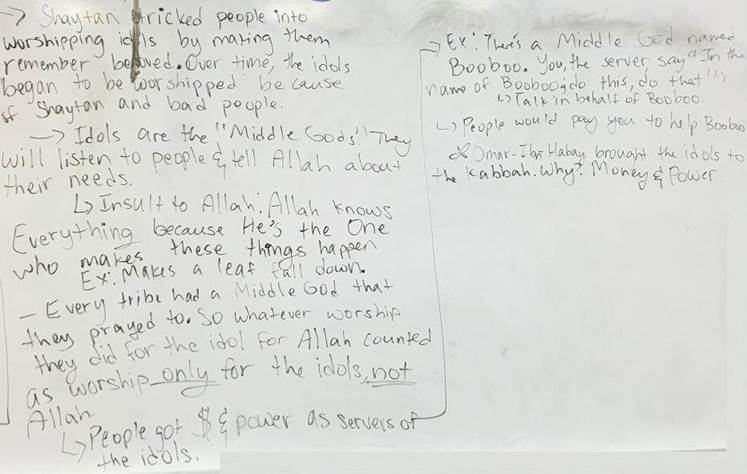 → Shaytan tricked people into
worshipping idols by making them
remember beloved. Over time, the idols
began to be worshipped because
of Shaytan and bad people.
→ Idols are the "Middle Gods". They
will listen to people & tell Allah about
their needs.
↳ Insult to Allah. Allah knows
Everything because He's the One
who makes these things happen
Ex: Makes a leaf fall down.
- Every tribe had a Middle God that
they prayed to. So whatever worship
they did for the idol for Allah counted
as worship only for the idols, not
Allah.
↳ People got $ & power as servers of
the idols.
→ Ex: There's a Middle God named
Booboo. You, the server say "In the
name of Booboo, do this, do that!")
↳ Talk in behalf of Booboo.
↳ People would pay you to help Booboo
Omar-Ibn Habay brought the idols to
the Kabbah. Why? Money & Power